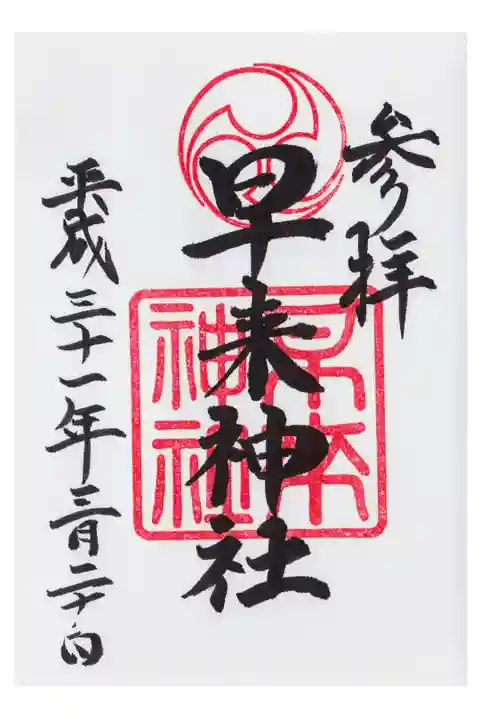 参拝
早来神社
早来神社
平成三十一年三月二十日